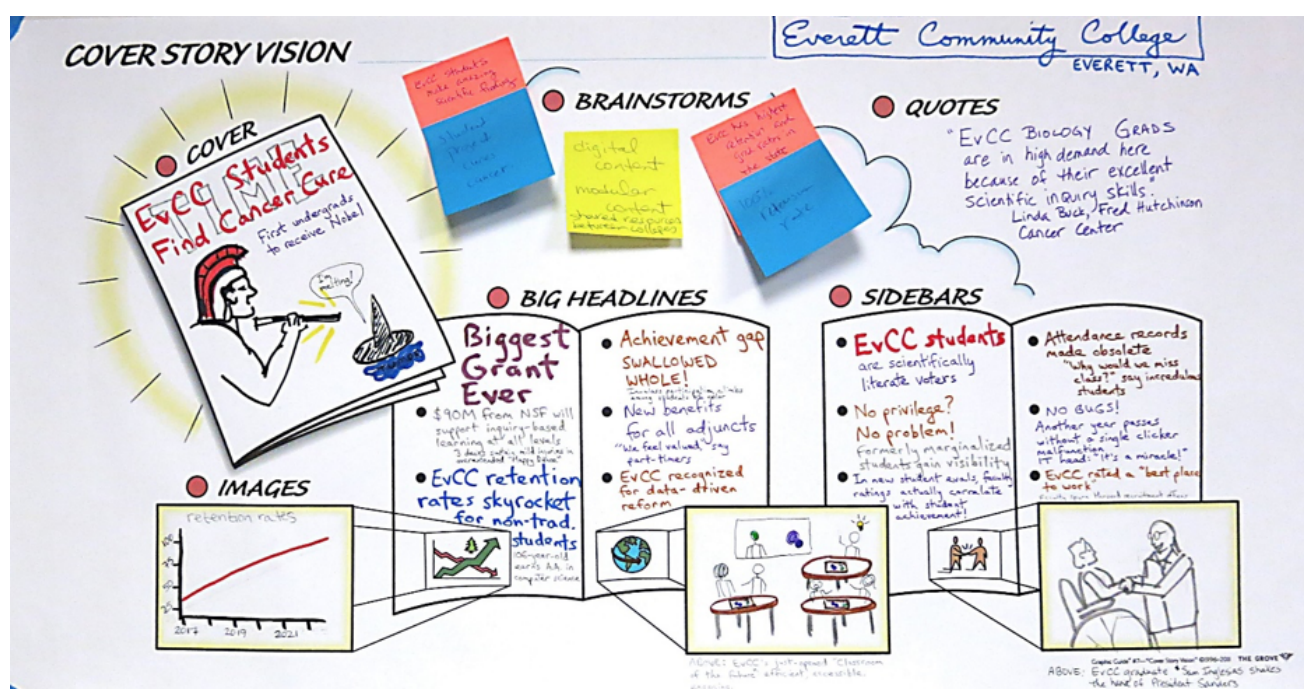 COVER STORY VISION
Everett Community College
EVERETT, WA
COVER
TIME
EvCC Students
Find Cancer Cure
First undergrads
to receive Nobel
I'm
melting!
EvCC students
make amazing
scientific findings
student
project
cures
cancer
BRAINSTORMS
digital
content
modular
content
shared resources
between colleges
EvCC has highest
retention and
grad rates in
the state
100%
retention
rate
QUOTES
"EvCC BIOLOGY GRADS
are in high demand here
because of their excellent
scientific inquiry skills."
Linda Buck, Fred Hutchinson
Cancer Center
BIG HEADLINES
Biggest
Grant
Ever
$90M from NSF will
support inquiry-based
learning at all levels
3 deans
mild injuries in
"Happy Dance"
EvCC retention
rates skyrocket
for non-trad.
students
106-year-old
earns A.A. in
computer science
Achievement gap
SWALLOWED
WHOLE!
New benefits
for all adjuncts
"We feel valued" say
part-timers
EvCC recognized
for data-driven
reform
SIDEBARS
EvCC students
are scientifically
literate voters
No privilege?
No problem!
Formerly marginalized
students gain visibility
In new student evals, faculty
ratings actually correlate
with student
achievement!
Attendance records
made obsolete
"Why would we miss
class?" say incredulous
students
NO BUGS!
Another year passes
without a single clicker
malfunction
IT head: "It's a miracle!"
EvCC rated a "best place
to work"
IMAGES
retention rates
100
25
2017 2019 2021
ABOVE: EvCC's just-opened "Classroom
of the Future" efficient, accessible,
Graphic Guide® #7—"Cover Story Vision" ©1996-2011 THE GROVE
ABOVE: EvCC graduate Sam Inglesias shakes
the hand of President Sanders